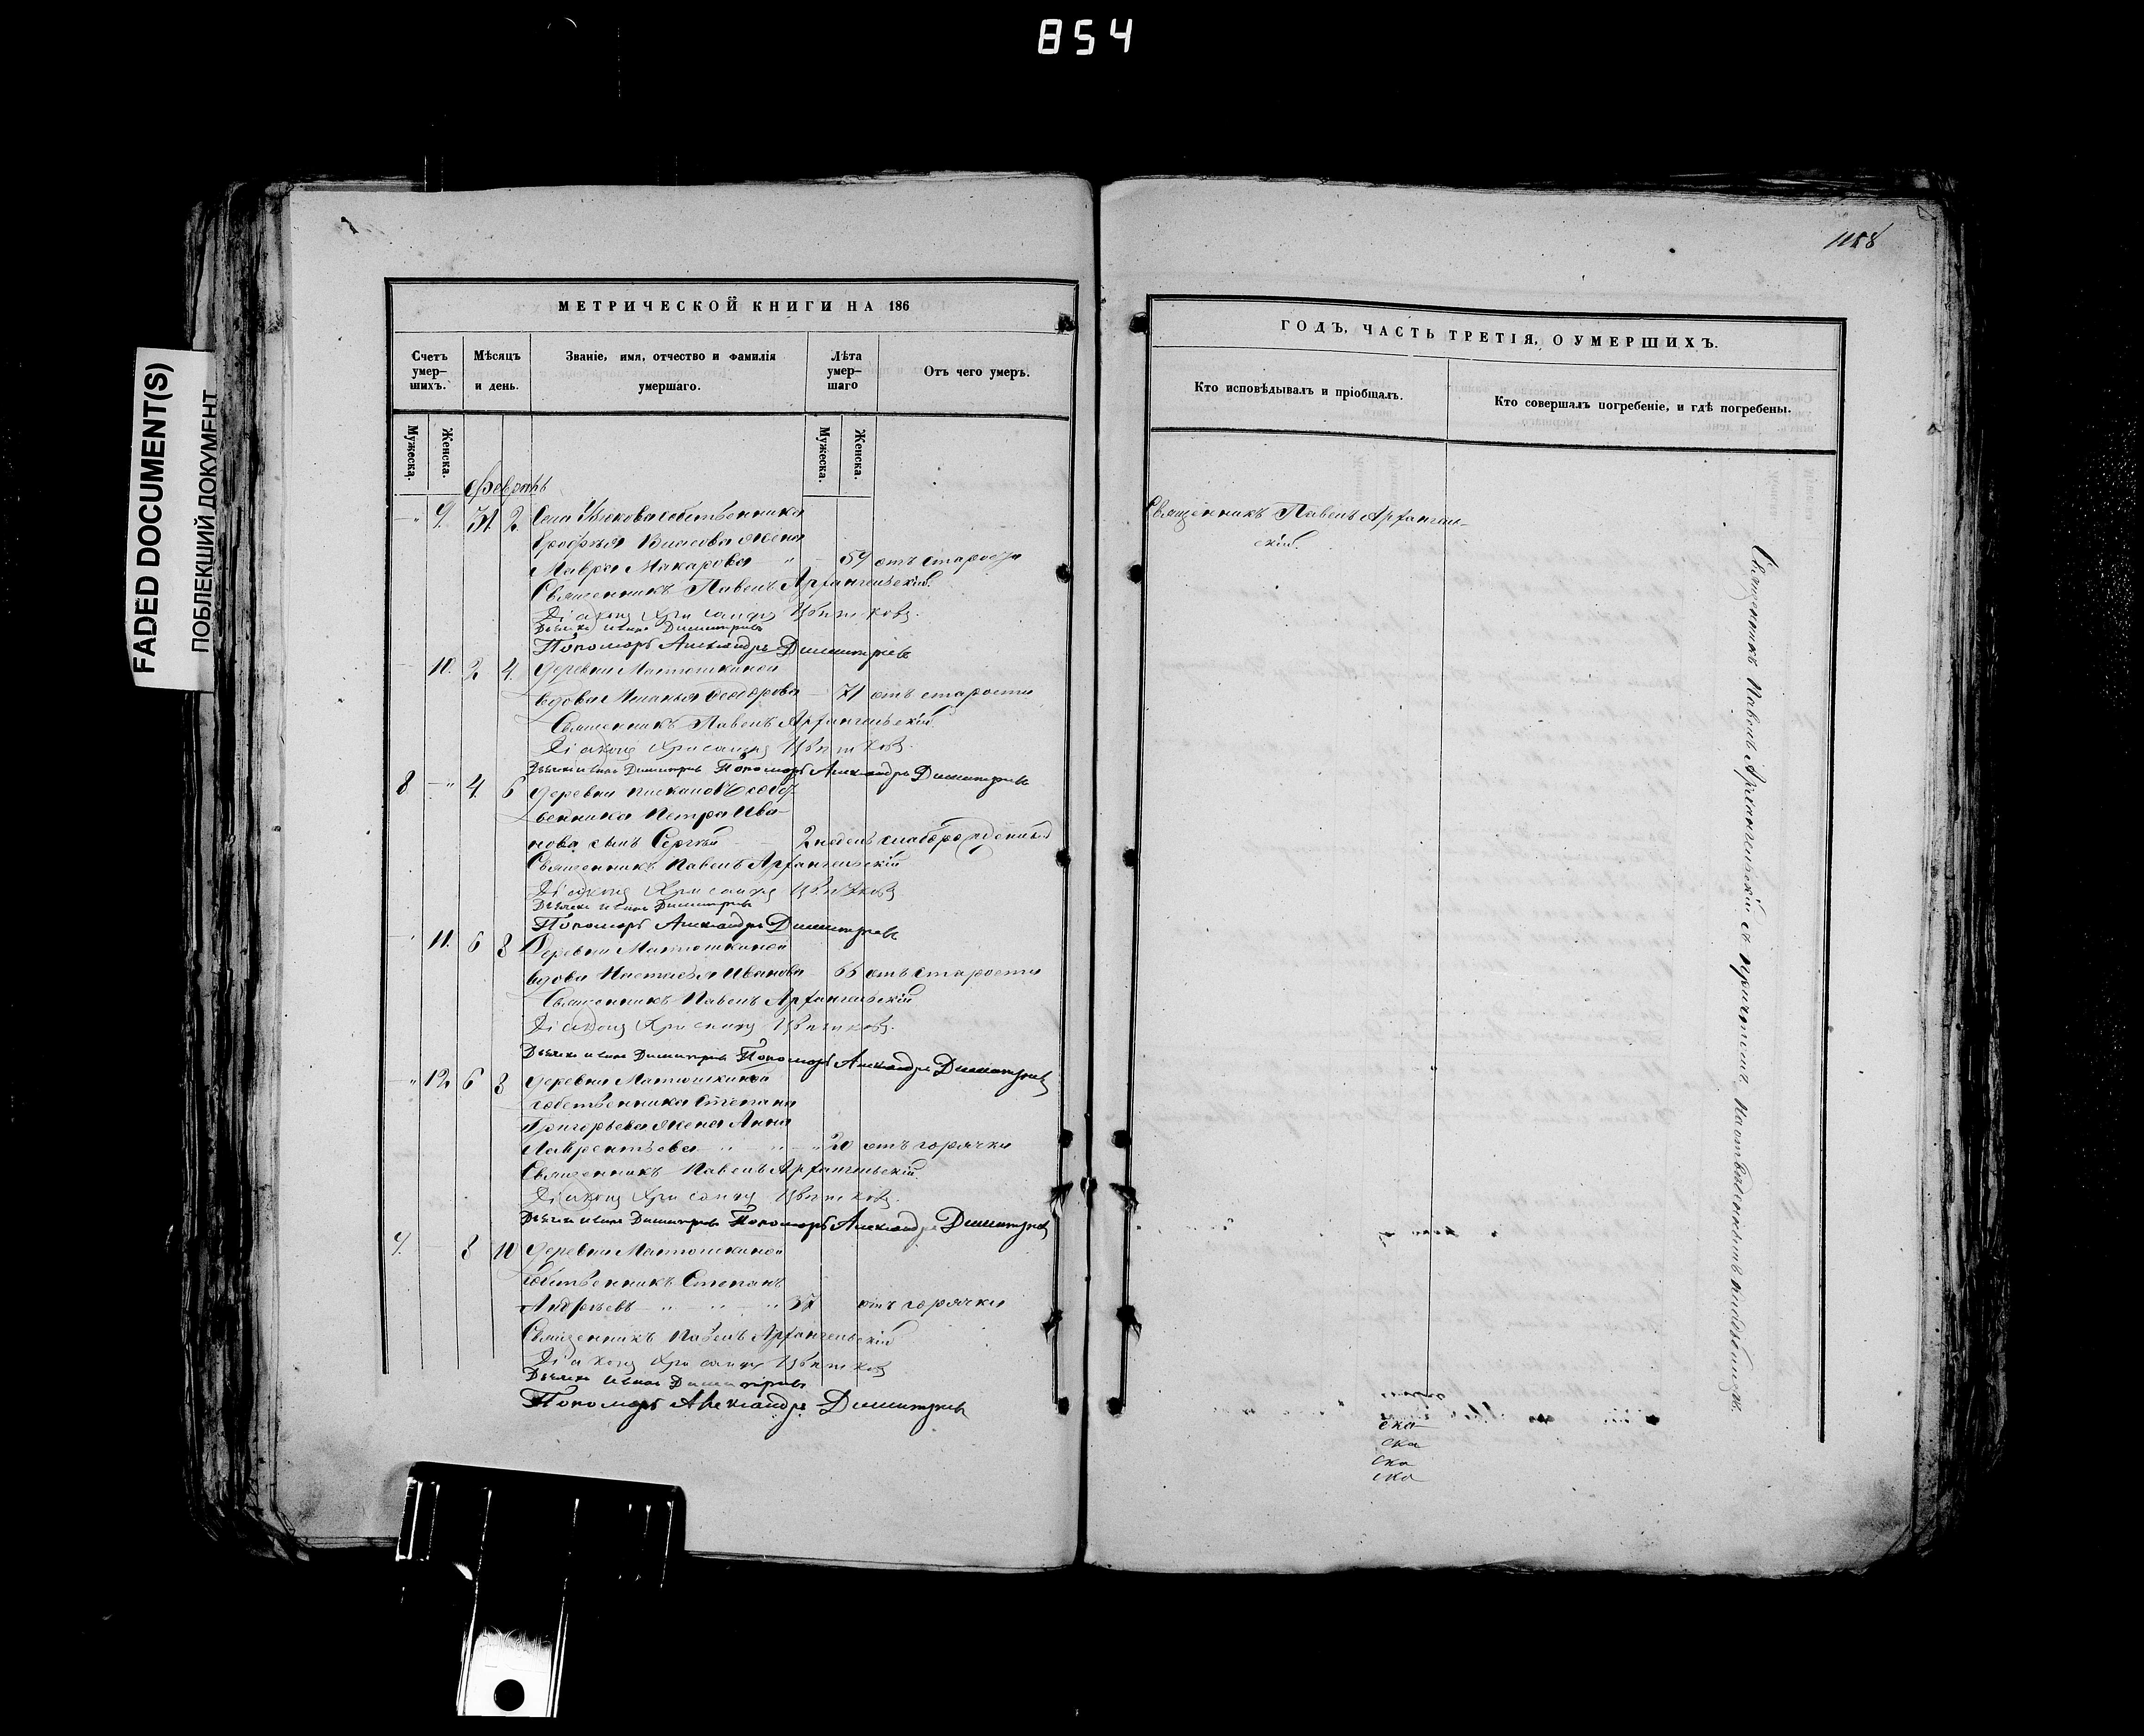 854
FADED DOCUMENT(S)
ПОБЛЕКШИЙ ДОКУМЕНТ
1188
МЕТРИЧЕСКОЙ КНИГИ НА 186
Счетъ умер-шихъ.
Мѣсяцъ и день.
Званіе, имя, отчество и фамилія умершаго.
Лѣта умер-шаго
Отъ чего умеръ.
Мужеска.
Женска.
Мужеска.
Женска.
Февраль
9. 31. 2. Села собственника
Власова жена
Мавра Макарова 59 отъ старости
Священникъ Павелъ Архангельскій
Діаконъ Хрисанфъ Цвѣтковъ.
Дьячекъ Иванъ Димитріевъ
Пономарь Александръ Димитріевъ
10. 2 4. Деревни Матюшкиной
вдова Ѳеодорова 71 отъ старости
Священникъ Павелъ Архангельскій
Діаконъ Хрисанфъ Цвѣтковъ.
Дьячекъ Иванъ Димитріевъ Пономарь Александръ Димитріевъ
8 4. 6 Деревни собст-
венника Петра Ива-
нова сынъ Сергѣй 2 недель слаборожденный
Священникъ Павелъ Архангельскій
Діаконъ Хрисанфъ Цвѣтковъ
Дьячекъ Иванъ Димитріевъ
Пономарь Александръ Димитріевъ
11. 6 8 Деревни Матюшкиной
вдова Настасья Иванова отъ старости
Священникъ Павелъ Архангельскій
Діаконъ Хрисанфъ Цвѣтковъ.
Дьячекъ Иванъ Димитріевъ Пономарь Александръ Димитріевъ
12. 6 8 Деревни Матюшкиной
собственника Степана
Григорьева жена Анна
Лаврентьева 20 отъ горячки
Священникъ Павелъ Архангельскій
Діаконъ Хрисанфъ Цвѣтковъ.
Дьячекъ Иванъ Димитріевъ Пономарь Александръ Димитріевъ
9. 8 10 Деревни Матюшкиной
собственникъ Степанъ
Андреевъ 37 отъ горячки
Священникъ Павелъ Архангельскій
Діаконъ Хрисанфъ Цвѣтковъ
Дьячекъ Иванъ Димитріевъ
Пономарь Александръ Димитріевъ
ГОДЪ, ЧАСТЬ ТРЕТІЯ, О УМЕРШИХЪ.
Кто исповѣдывалъ и пріобщалъ.
Кто совершалъ погребеніе, и гдѣ погребены.
Священникъ Павелъ Архангель-
скій.
Священникъ Павелъ Архангельскій съ причтомъ, на отведенномъ кладбищѣ.
ска
ска
ска
ска